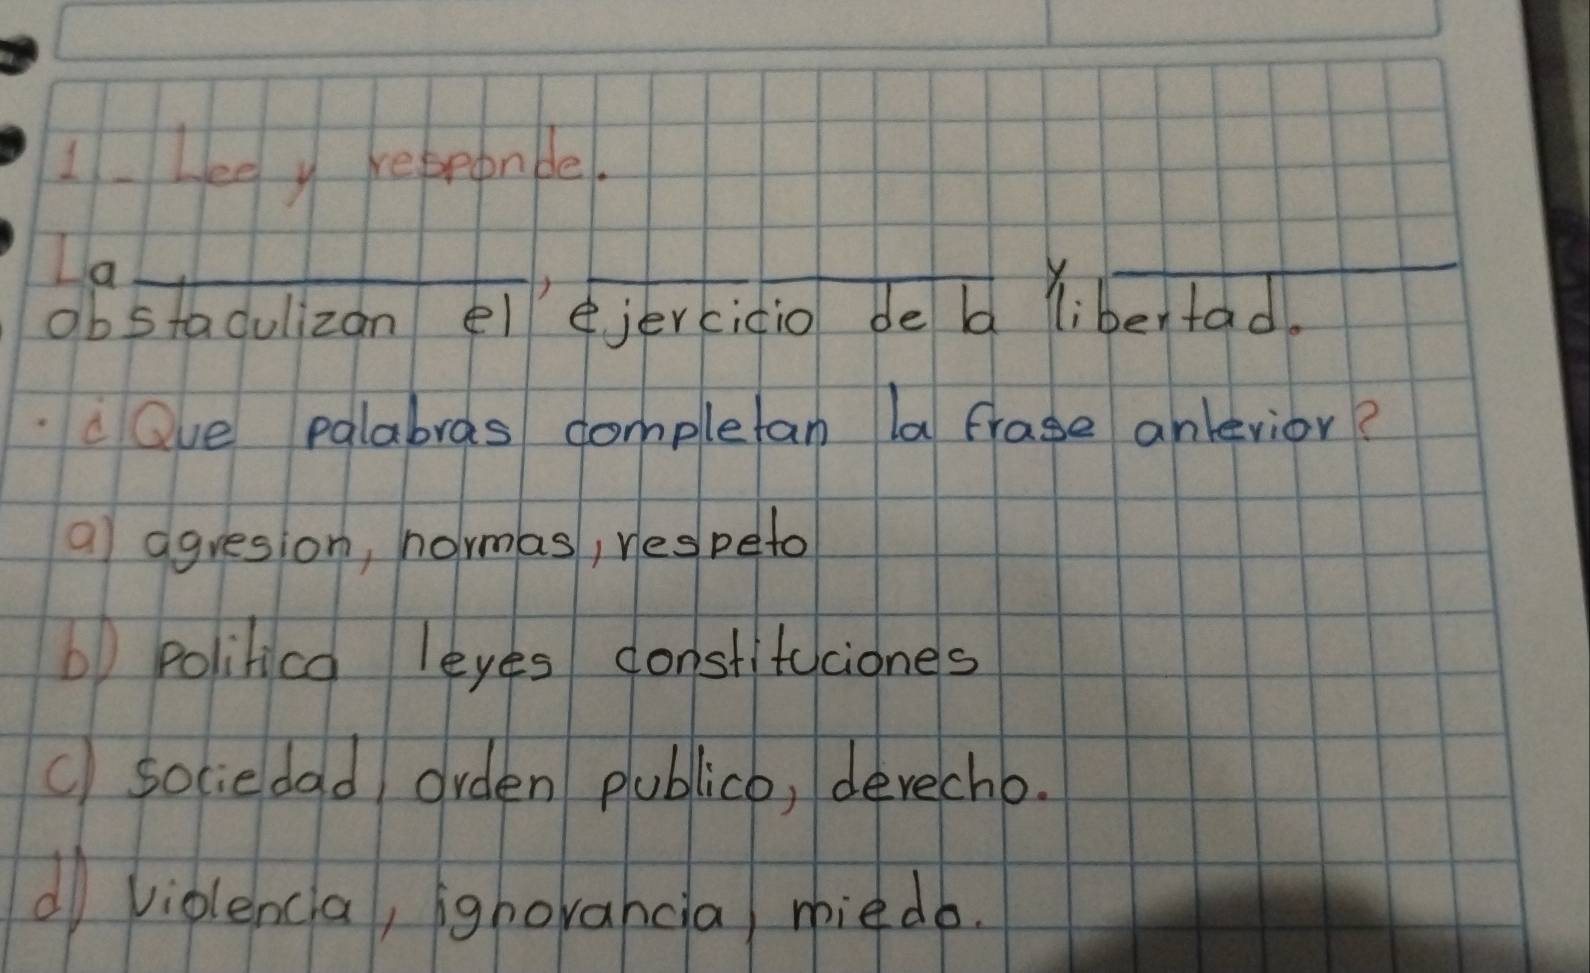 1- Lee y responde.
La ____________, ____________ y ____________
obstaculizan el ejercicio de la libertad.
· ¿Que palabras completan la frase anterior?
a) agresion, normas, respeto
b) Politica leyes constituciones
c) sociedad, orden publico, derecho.
d) violencia, ignorancia, miedo.